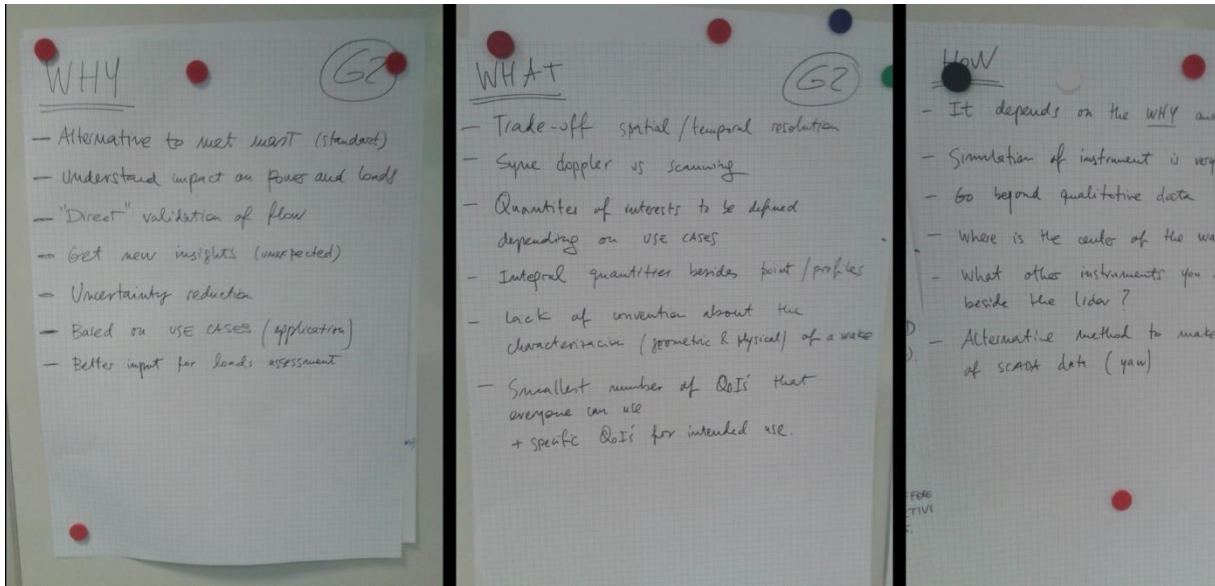 WHY
G2
— Alternative to met mast (standard)
— Understand impact on power and loads
— "Direct" validation of flow
— Get new insights (unexpected)
— Uncertainty reduction
— Based on USE CASES (application)
— Better input for loads assessment
WHAT
G2
— Trade-off spatial/temporal resolution
— Sync doppler vs scanning
— Quantites of interests to be defined
depending on USE CASES
— Integral quantities besides point/profiles
— Lack of convention about the
characterizacion (geometric & physical) of a wake
— Smallest number of QoI's that
everyone can use
+ specific QoI's for intended use.
HOW
— It depends on the WHY and
— Simulation of instrument is very
— Go beyond qualitative data
— Where is the center of the wa
— What other instruments you
beside the lidar?
— Alternative method to make
of SCADA data (yaw)